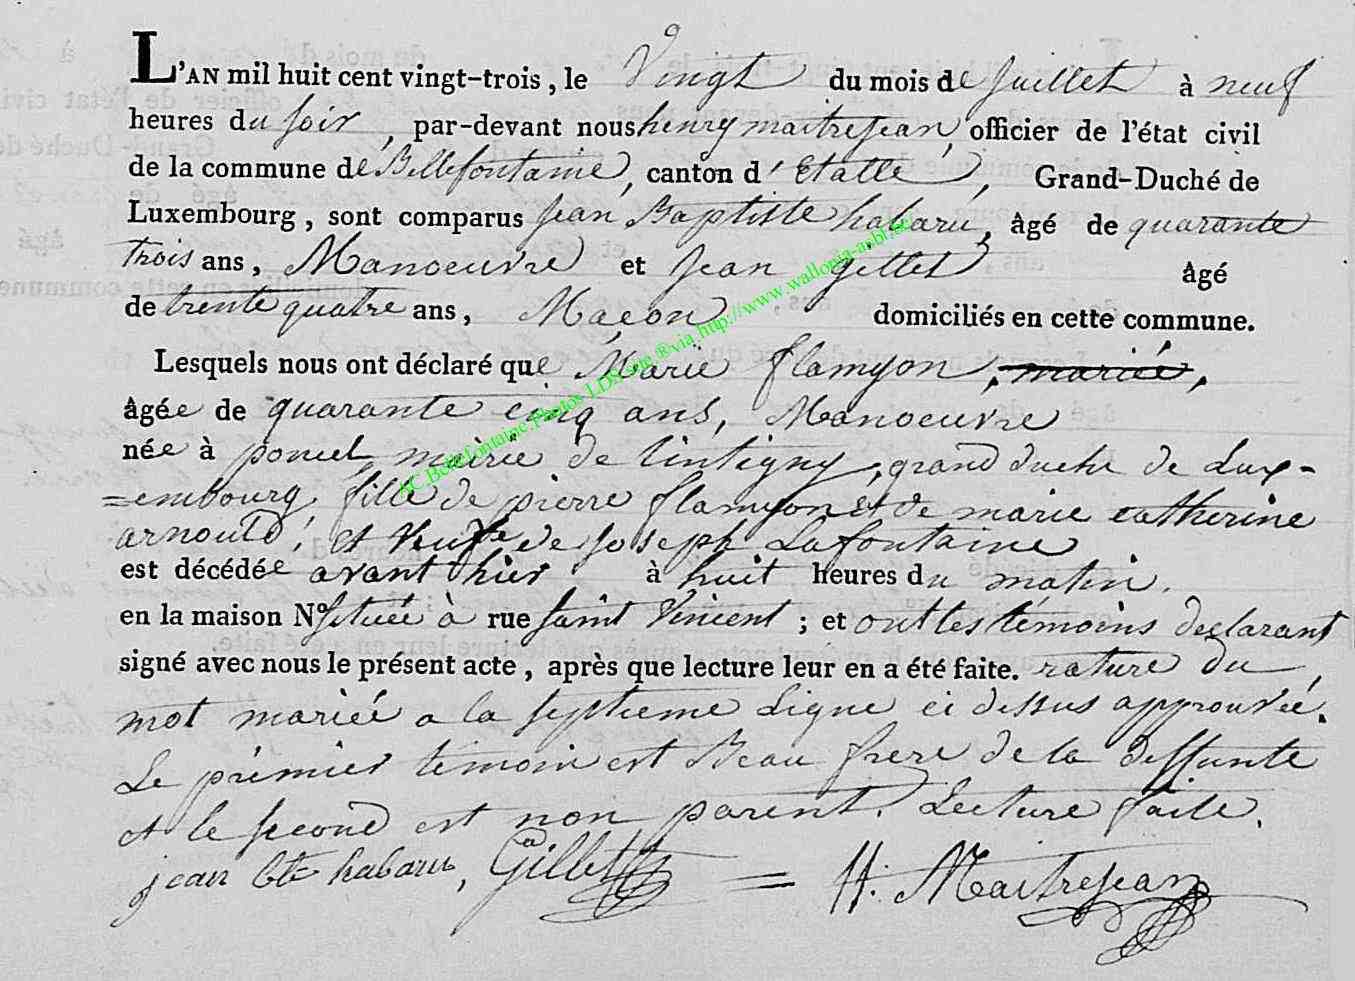 L'AN mil huit cent vingt-trois, le Vingt du mois de Juillet à neuf
heures du soir, par-devant nous henry maitrejean, officier de l'état civil
de la commune de Bellefontaine, canton d'Etalle, Grand-Duché de
Luxembourg, sont comparus Jean Baptiste habaru, âgé de quarante
trois ans, Manoeuvre et Jean Gillet âgé
de trente quatre ans, Maçon domiciliés en cette commune.
Lesquels nous ont déclaré que Marie flamyon, mariée,
âgée de quarante cinq ans, Manoeuvre
née à poncel mairie de tintigny, grand duche de Lux-
=embourg, fille de pierre flamyon et de marie catherine
arnould, et veuffe de joseph Lafontaine
est décédée avant hier à huit heures du matin.
en la maison N° située à rue saint Vincent; et ont les témoins declarant
signé avec nous le présent acte, après que lecture leur en a été faite. rature du
mot mariée a la septieme Ligne ci dessus approuvée.
Le premier temoin est Beau frere de la deffunte
et le second est non parent. Lecture faite.
jean bte habaru, Gillet = H. Maitrejean
AC.Bellefontaine.Photos LDS.org ®via http://www.wallonia-asbl.be/